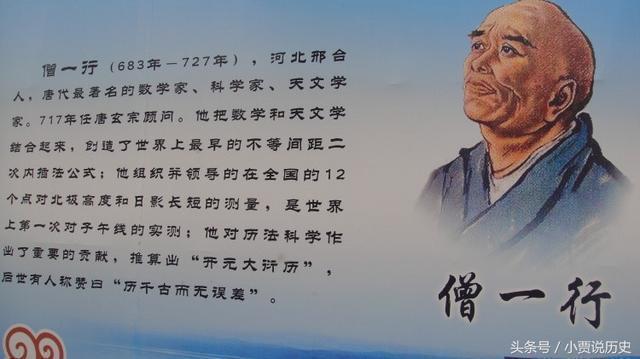 僧一行（683年－727年），河北邢台
人，唐代最著名的数学家、科学家、天文学
家。717年任唐玄宗顾问。他把数学和天文学
结合起来，创造了世界上最早的不等间距二
次内插法公式；他组织并领导的在全国的12
个点对北极高度和日影长短的测量，是世界
上第一次对子午线的实测；他对历法科学作
出了重要的贡献，推算出“开元大衍历”，
后世有人称赞曰“历千古而无误差”。
僧一行
头条号／小贾说历史